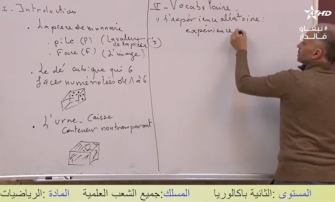 I. Introduction
- La pièce de monnaie
. pile (P) (la valeur de la pièce)
. Face (F) (l'image)
. Le dé cubique qui 6 faces numérotées de 1 à 6
. L'urne. Caisse
contenant non transparent
II - Vocabulaire
1) L'expérience aléatoire:
expérience
المستوى :الثانية باكالوريا
المسلك:جميع الشعب العلمية
المادة :الرياضيات